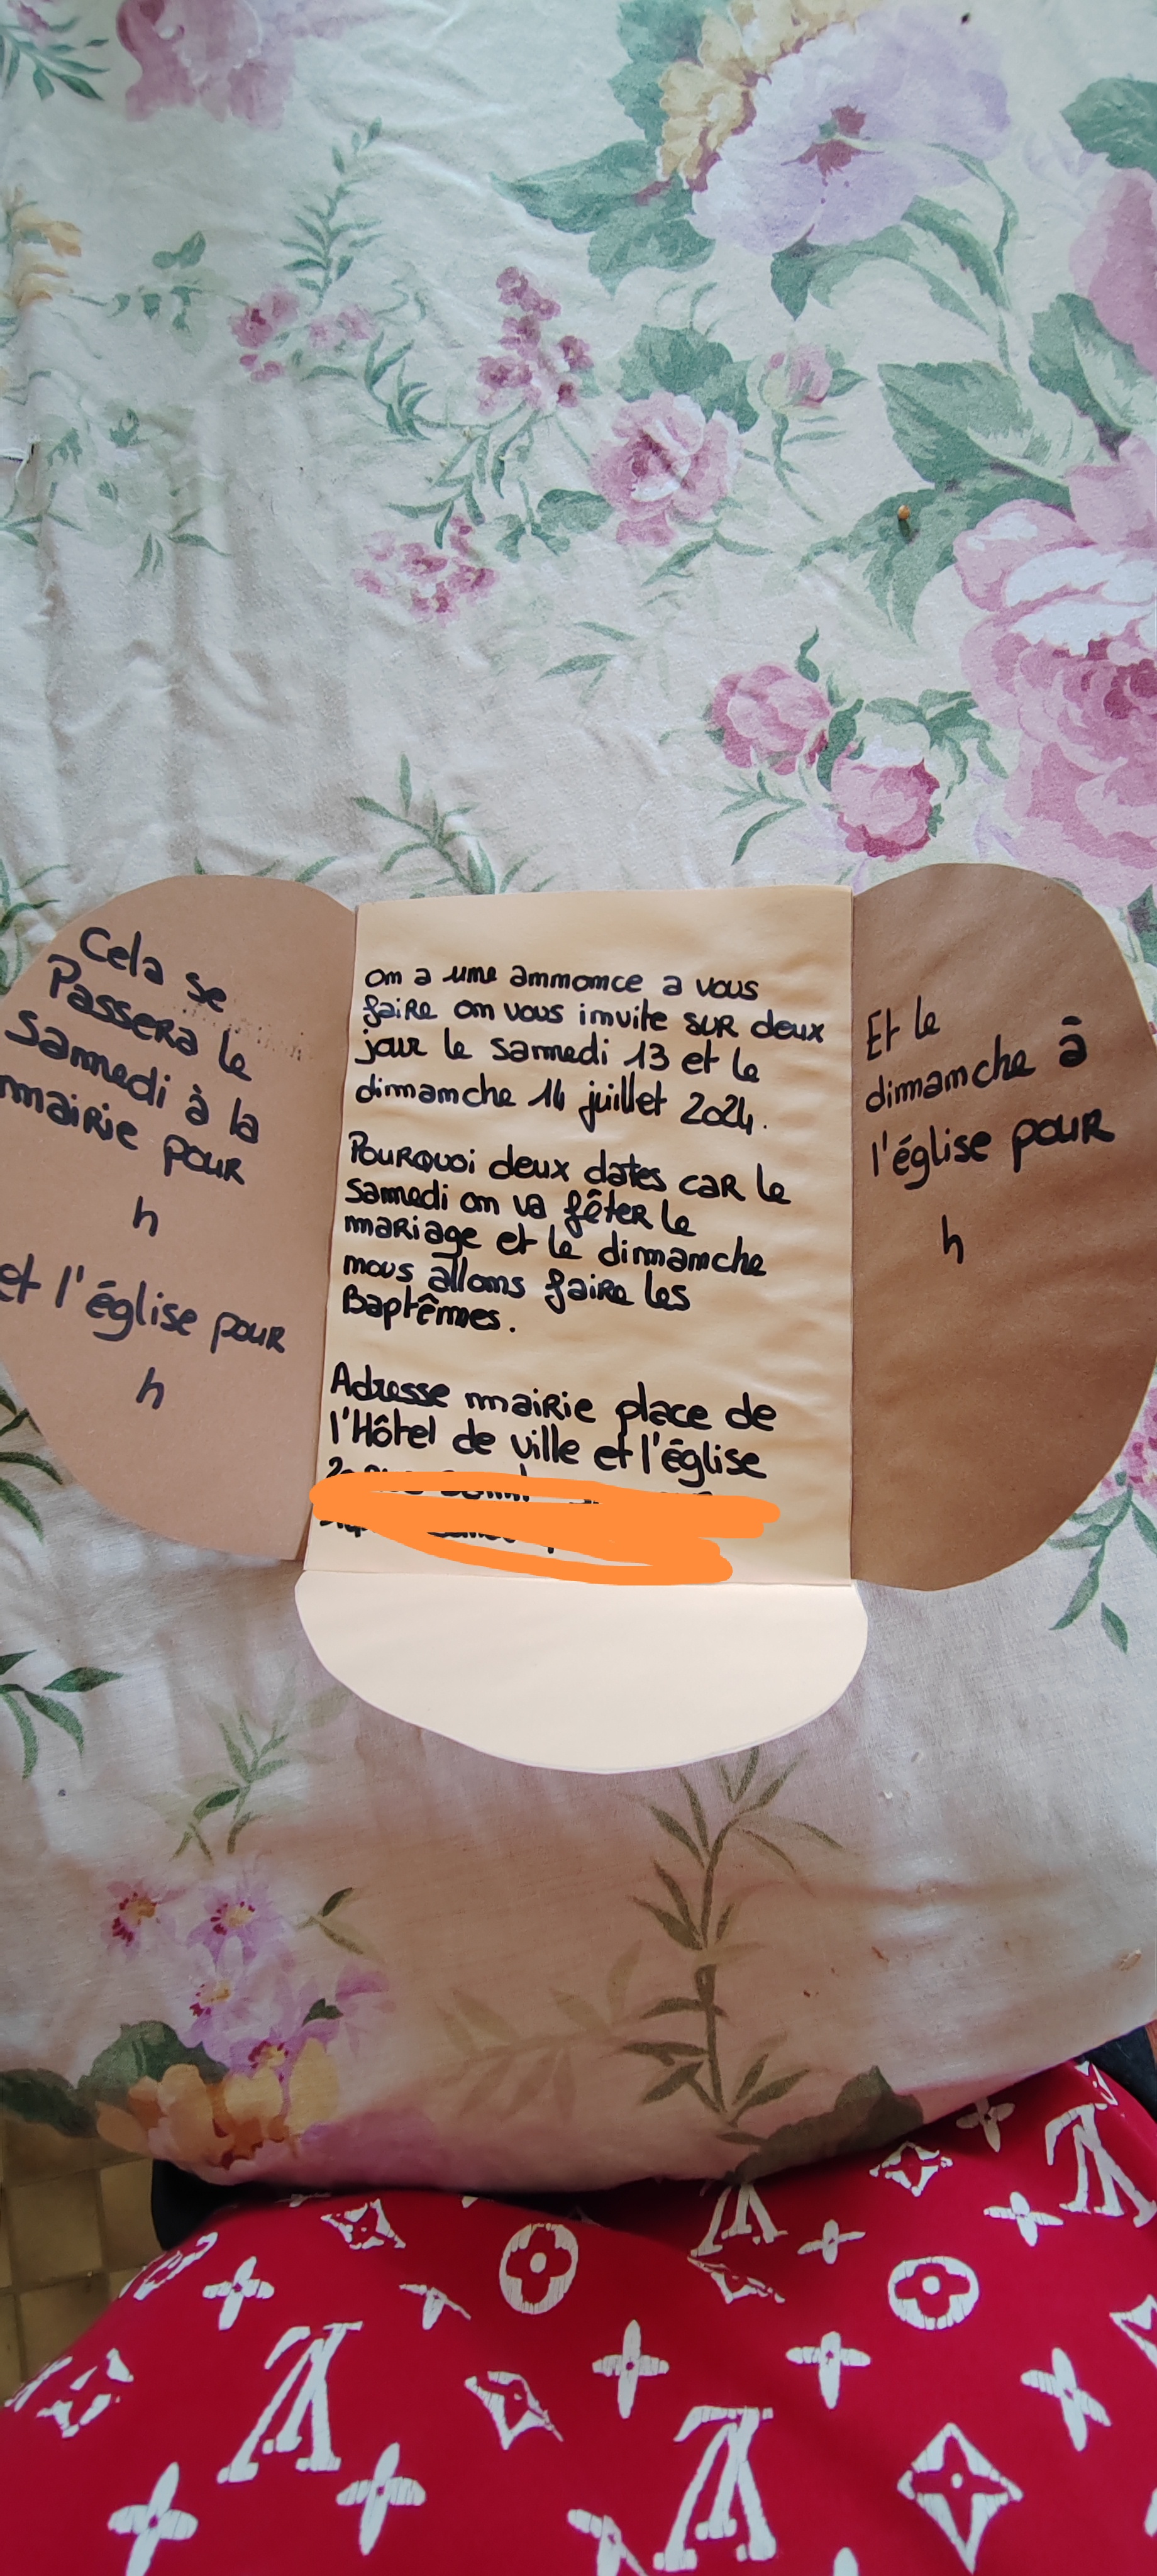 Cela se
Passera le
Samedi à la
mairie pour
h
et l'église pour
h
on a une annonce a vous
faire on vous invite sur deux
jour le samedi 13 et le
dimanche 14 juillet 2024.
Pourquoi deux dates car le
samedi on va fêter le
mariage et le dimanche
nous allons faire les
Baptêmes.
Adresse mairie place de
l'Hôtel de ville et l'église
Et le
dimanche à
l'église pour
h